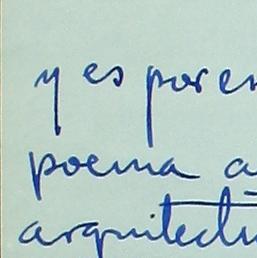 y es por en
poema a
arquitectu